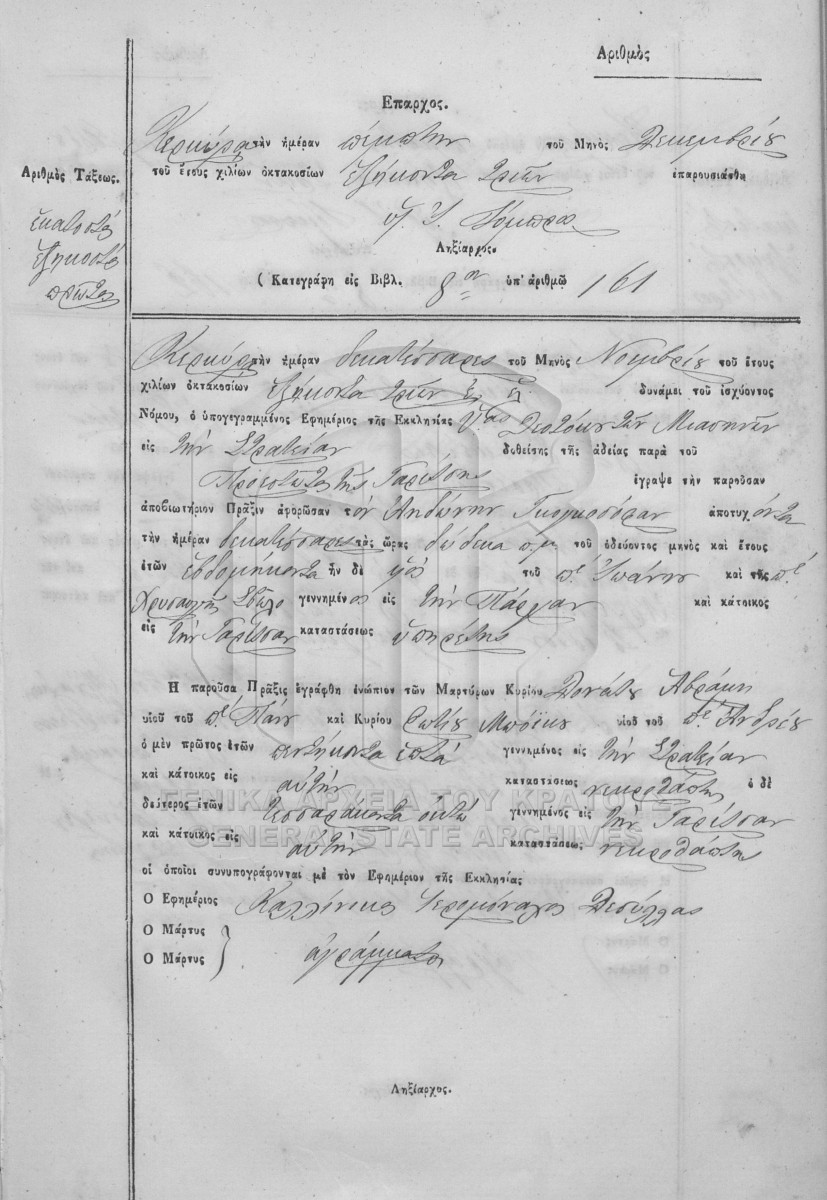 Ἀριθμὸς
Ἔπαρχος.
Κερκύρα τὴν ἡμέραν πέμπτην τοῦ Μηνὸς Δεκεμβρίου
τοῦ ἔτους χιλίων ὀκτακοσίων ἑξήκοντα τριῶν ἐπαρουσιάσθη
Ληξίαρχος.
( Κατεγράφη εἰς Βιβλ. 8ον ὑπ' ἀριθμῷ 161
Ἀριθμὸς Τάξεως.
ἑκατοστὸ
ἑξηκοστὸ
πρῶτον
Κερκύρα τὴν ἡμέραν δεκατέσσαρες τοῦ Μηνὸς Νοεμβρίου τοῦ ἔτους
χιλίων ὀκτακοσίων ἑξήκοντα τριῶν δυνάμει τοῦ ἰσχύοντος
Νόμου, ὁ ὑπογεγραμμένος Ἐφημέριος τῆς Ἐκκλησίας Θεοτόκου τῶν
εἰς τὴν Στρατείαν δοθείσης τῆς ἀδείας παρὰ τοῦ
Προεστῶτα τῆς Γαρίτσης ἔγραψε τὴν παροῦσαν
ἀποβιωτήριον Πρᾶξιν ἀφορῶσαν τὸν Ἀνδώνην ἀποτυχόντα
τὴν ἡμέραν δεκατέσσαρες τὰς ὥρας δώδεκα π.μ. τοῦ ὁδεύοντος μηνὸς καὶ ἔτους
ἐτῶν ἑβδομήκοντα ἦν δὲ υἱὸς τοῦ πε Ἰωάννου καὶ τῆς πε
Χρυσαυγῆς γεννημένος εἰς τὴν Πάργαν καὶ κάτοικος
εἰς τὴν Γαρίτσαν καταστάσεως ὑπηρέτης
Ἡ παροῦσα Πρᾶξις ἐγράφθη ἐνώπιον τῶν Μαρτύρων Κυρίου Δονάτου Αβράμη
υἱοῦ τοῦ πε καὶ Κυρίου Φωτίου υἱοῦ τοῦ πε Ἀνδρέου
ὁ μὲν πρῶτος ἐτῶν πεντήκοντα ἑπτά γεννημένος εἰς τὴν Στρατείαν
καὶ κάτοικος εἰς αὐτὴν καταστάσεως νεκροθάπτης ὁ δὲ
δεύτερος ἐτῶν τεσσαράκοντα οκτώ γεννημένος εἰς τὴν Γαρίτσαν
καὶ κάτοικος εἰς αὐτὴν καταστάσεως νεκροθάπτης
οἱ ὁποῖοι συνυπογράφονται μὲ τὸν Ἐφημέριον τῆς Ἐκκλησίας
Ὁ Ἐφημέριος Καλλίνικος Ἱερομόναχος Δεσύλλας
Ὁ Μάρτυς
Ὁ Μάρτυς
ἀγράμματοι
Ληξίαρχος.
ΓΕΝΙΚΑ ΑΡΧΕΙΑ ΤΟΥ ΚΡΑΤΟΥΣ
GENERAL STATE ARCHIVES